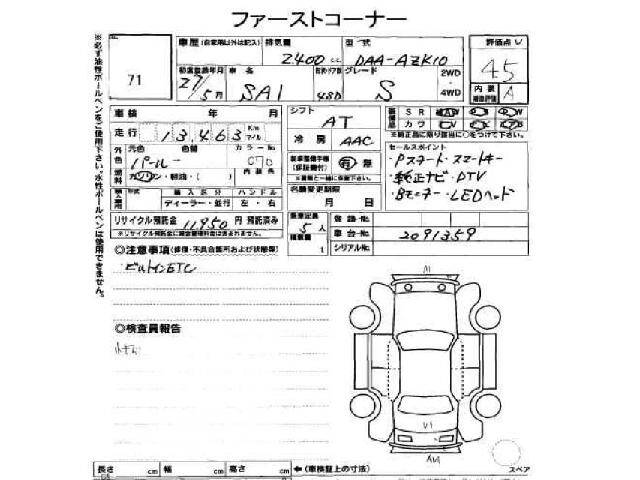 ファーストコーナー
※必ず油性ボールペンをご使用下さい。水性ボールペンは使用できません。
71
車歴 (自家用以外は記入) 排気量 型式 評価点
2400 cc DAA-AZK10 45
初度登録年月 車名 グレード 2WD 4WD 内装 A
27/5月 SAI 4SD S
車検 年 月 シフト AT SR AW PS PW
走行 13,463 Km マイル 冷房 AAC カワ
外色 元色 色替 カラーNo
パール 070
有・無
セールスポイント
・Pスタート・スマートキー
・純正ナビ・DTV
・Bモニター・LEDヘッド
ガソリン・軽油・( ) 輸入区分 ハンドル
ディーラー・並行 左・右
名義変更期限
月 日
リサイクル預託金 11,950 円 預託済み
乗車定員 5人
登録No.
車台No. 2091359
シリアルNo.
◎注意事項(修復・不具合箇所および状態等)
ビルトインETC
◎検査員報告
小キズ
A1
V1
長さ cm 幅 cm 高さ cm ←(車検証上の寸法)
スペア